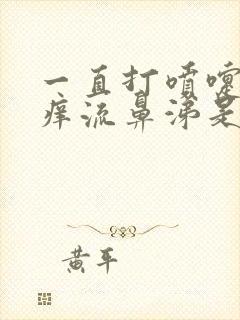 一直打喷嚏
痒流鼻涕是
黄平